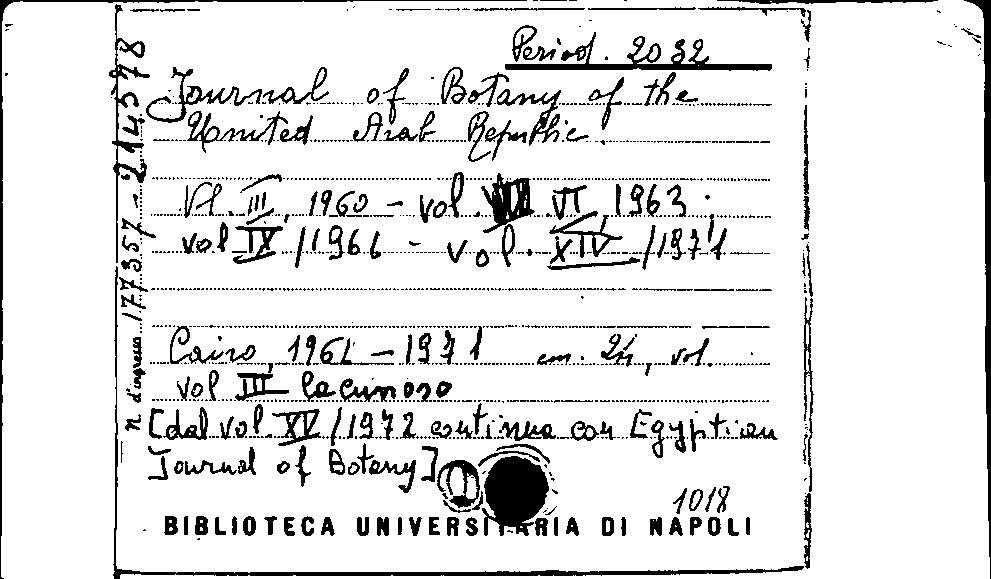 Period. 2032
Journal of Botany of the
United Arab Republic.
Vl. III, 1960 - vol. VI, 1963;
vol IX/1966 - vol. XIV/1971
Cairo, 1961 - 1971 cm. 24, vol.
vol III lacunoso
[dal vol. XV/1972 continua con Egyptian
Journal of Botany]
1018
BIBLIOTECA UNIVERSITARIA DI NAPOLI
n. d'ingresso 177357 - 214578